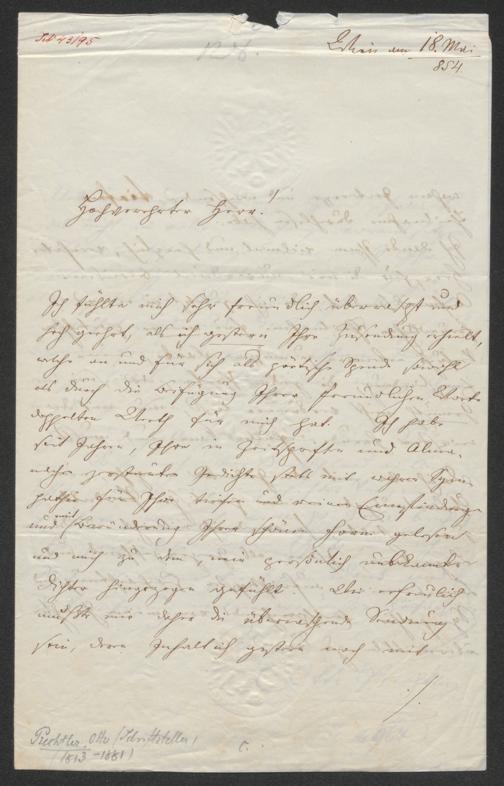 Wien am 18. Mai
854.
Hochverehrter Herr!
Ich fühlte mich sehr freundlich überrascht und
hoch geehrt, als ich gestern Ihre Zusendung erhielt,
welche an und für sich als poetische Spende sowohl
als durch die Beifügung Ihrer freundlichen Worte
doppelten Werth für mich hat. Ich habe
seit Jahren, Ihre in Zeitschriften und Alma-
nachen zerstreuten Gedichte stets mit wahrer Sym-
pathie für Ihre tiefen und reinen Empfindungen
und mit Bewunderung Ihrer schönen Form gelesen
und mich zu dem, mir persönlich unbekannten
Dichter hingezogen gefühlt. Wie erfreulich
mußte mir daher die überraschende Sendung
sein, deren Inhalt ich gestern noch mit
./.
Prechtler, Otto (Schriftsteller)
(1813-1881)